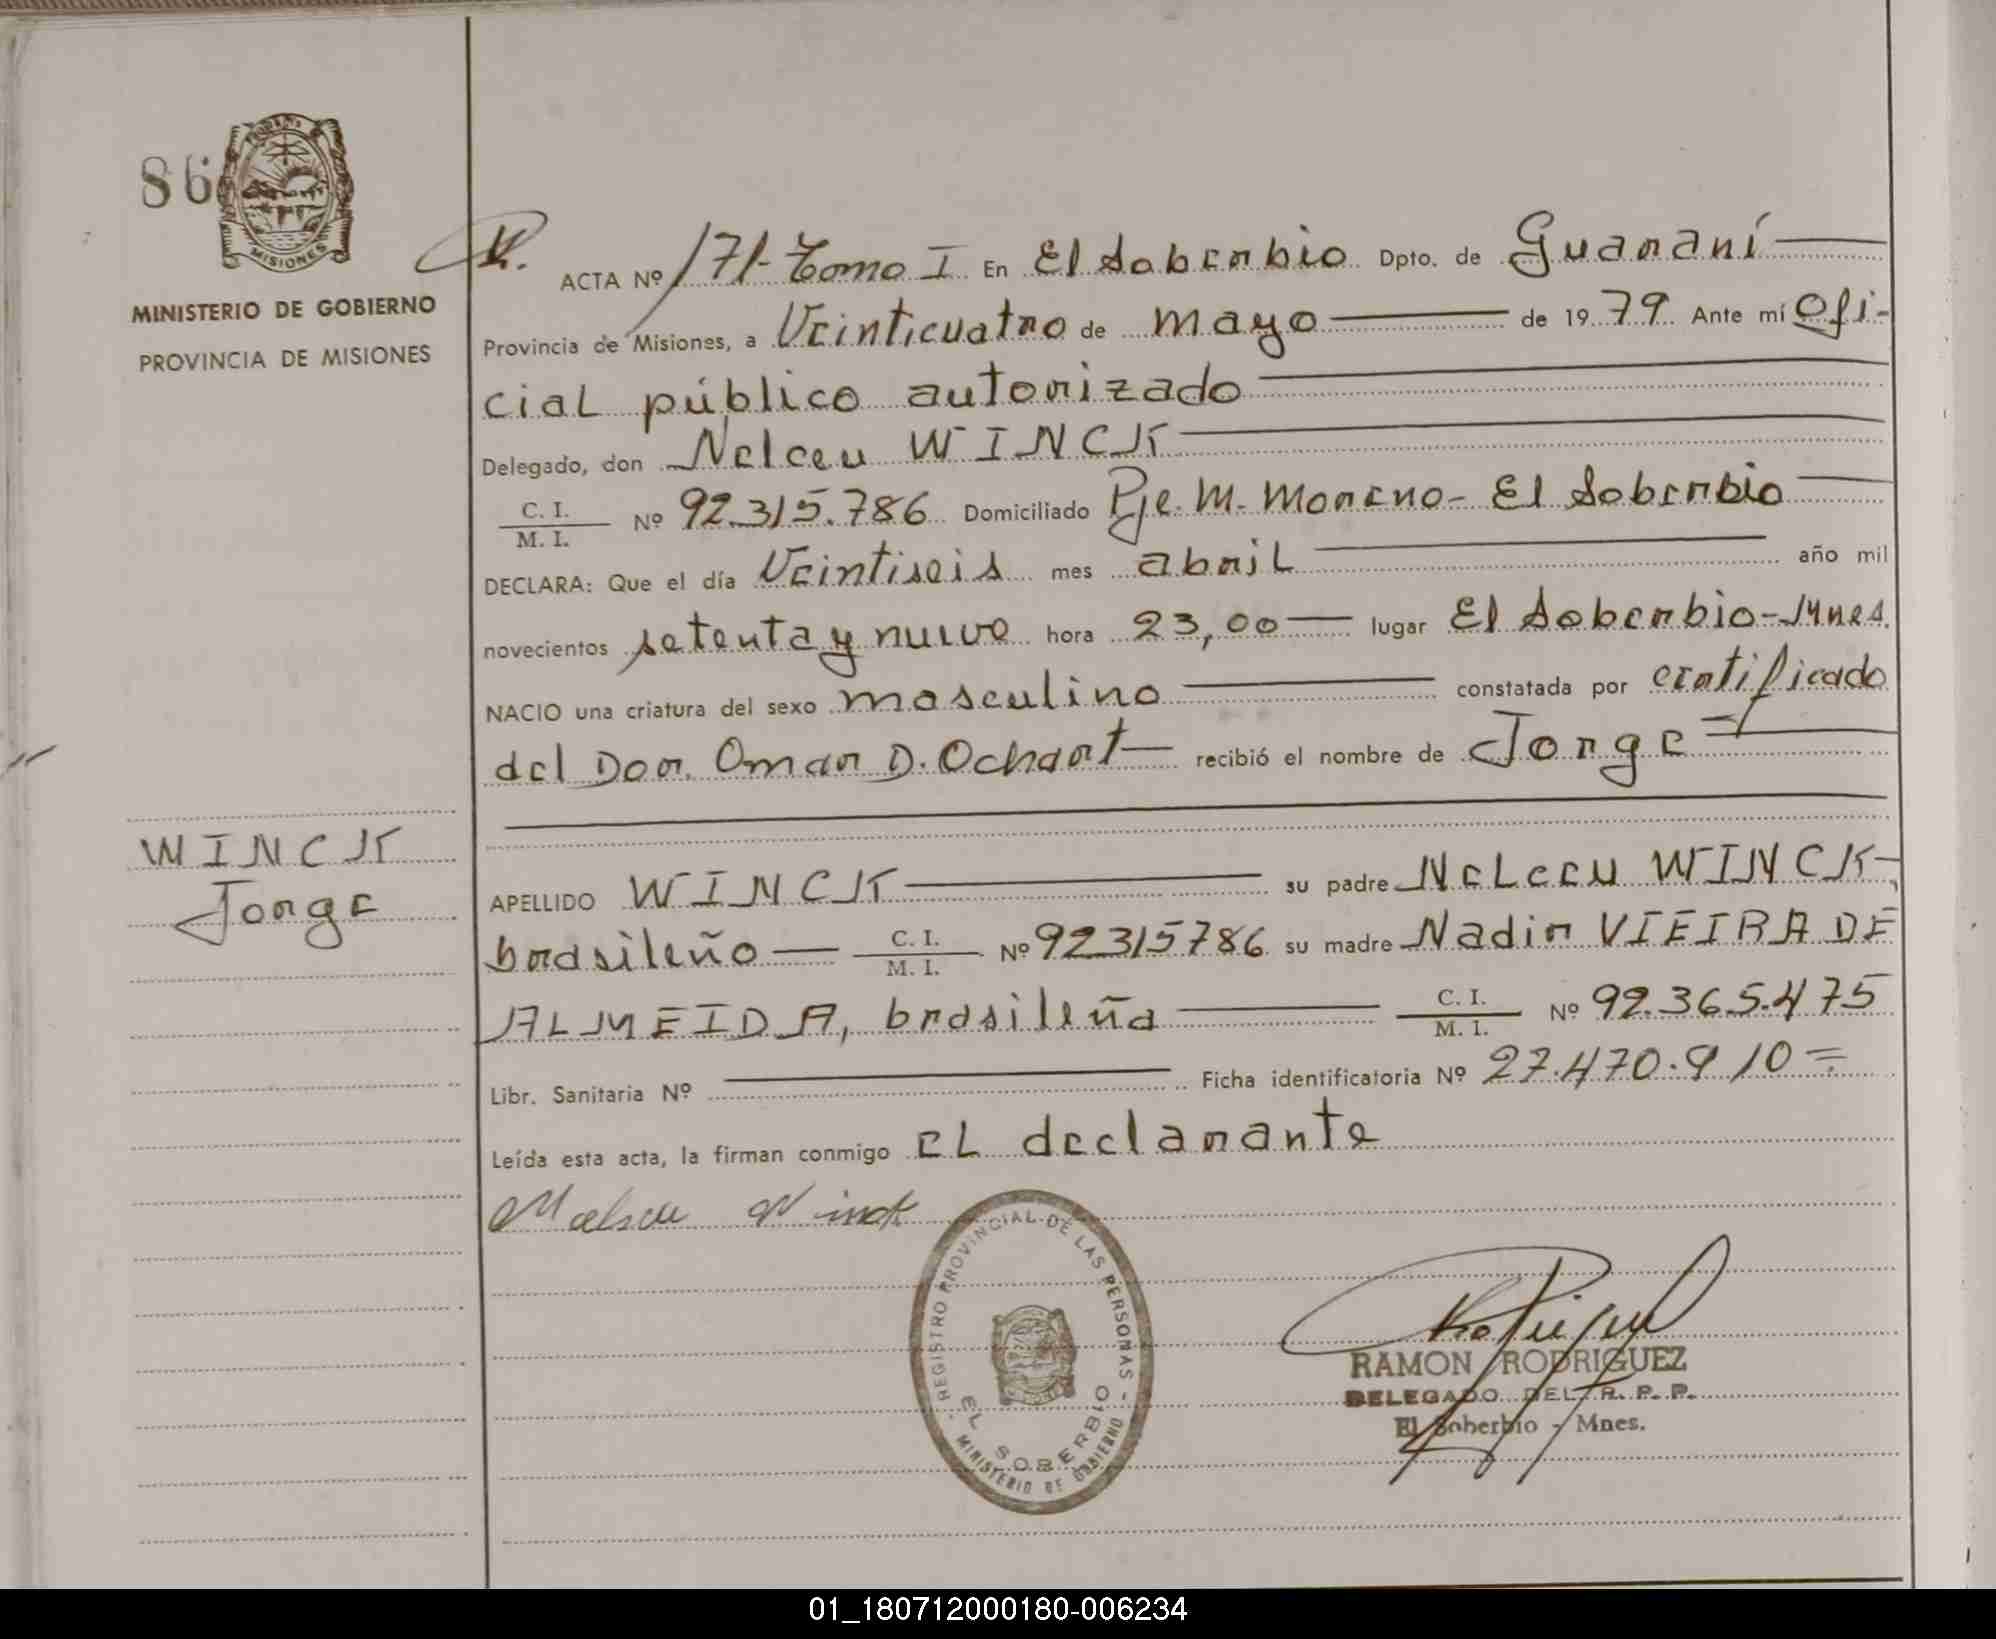 86
MISIONES
MINISTERIO DE GOBIERNO
PROVINCIA DE MISIONES
ACTA Nº 171- Tomo I En El Soberbio Dpto. de Guaraní
Provincia de Misiones, a Veinticuatro de mayo de 1979 Ante mí Ofi-
cial público autorizado
Delegado, don Nelceu WINCK
C. I.
M. I. Nº 92.315.786 Domiciliado Pje. M. Moreno- El Soberbio
DECLARA: Que el día Veintiseis mes abril año mil
novecientos setenta y nueve hora 23,00 lugar El Soberbio-Mnes.
NACIO una criatura del sexo masculino constatada por certificado
del Dor. Omar D. Ochart recibió el nombre de Jorge
WINCK
Jorge
APELLIDO WINCK su padre Nelceu WINCK,
brasileño C. I.
M. I. Nº 92315786 su madre Nadir VIEIRA DE
ALMEIDA, brasileña C. I.
M. I. Nº 92.365.475
Libr. Sanitaria Nº Ficha identificatoria Nº 27.470.910=
Leída esta acta, la firman conmigo el declarante
Nelseu Winck
REGISTRO PROVINCIAL DE LAS PERSONAS
EL SOBERBIO
MINISTERIO DE GOBIERNO
RAMON RODRIGUEZ
DELEGADO DEL R. P. P.
El Soberbio - Mnes.
01_180712000180-006234